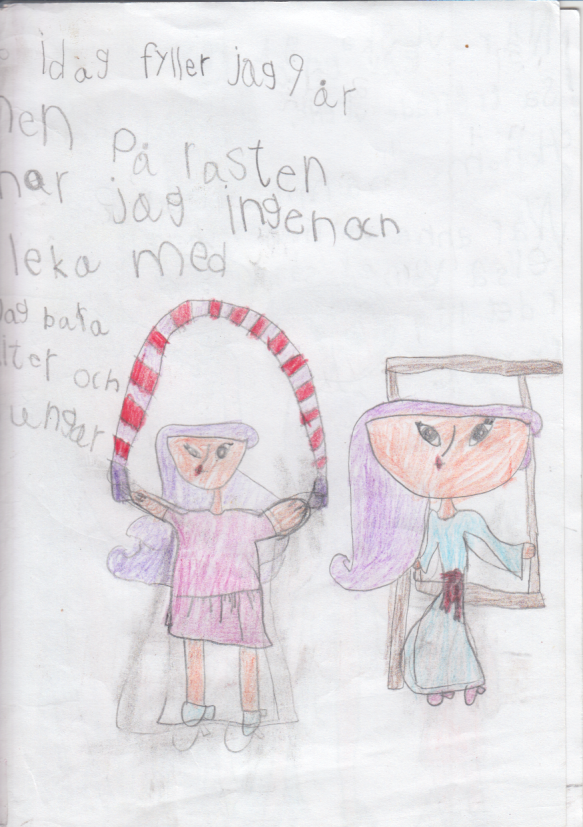 idag fyller jag 9 år
men På rasten
har jag ingen och
leka med
Jag bara
och
ungar